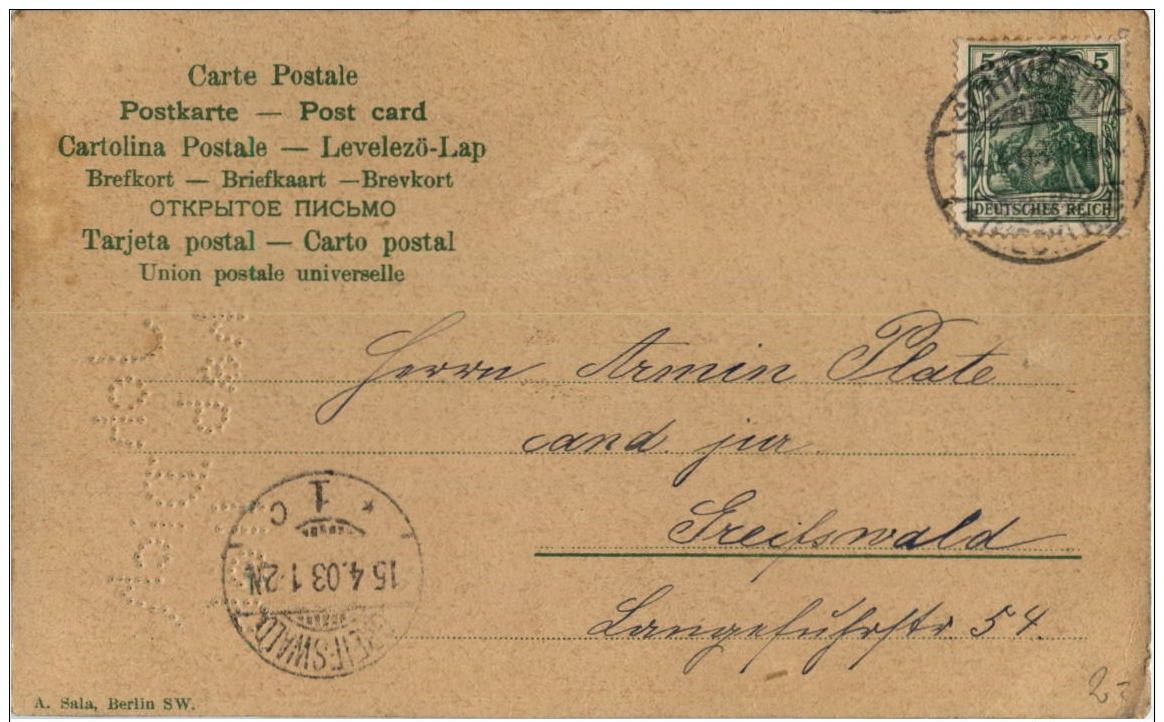 Carte Postale
Postkarte — Post card
Cartolina Postale — Levelezö-Lap
Brefkort — Briefkaart —Brevkort
ОТКРЫТОЕ ПИСЬМО
Tarjeta postal — Carto postal
Union postale universelle
5 5
DEUTSCHES REICH
Herrn Armin Plate
cand. jur.
Greifswald
Langefuhrstr 54.
GREIFSWALD
15.4.03 1-2N
* 1 C
A. Sala, Berlin SW.
2-